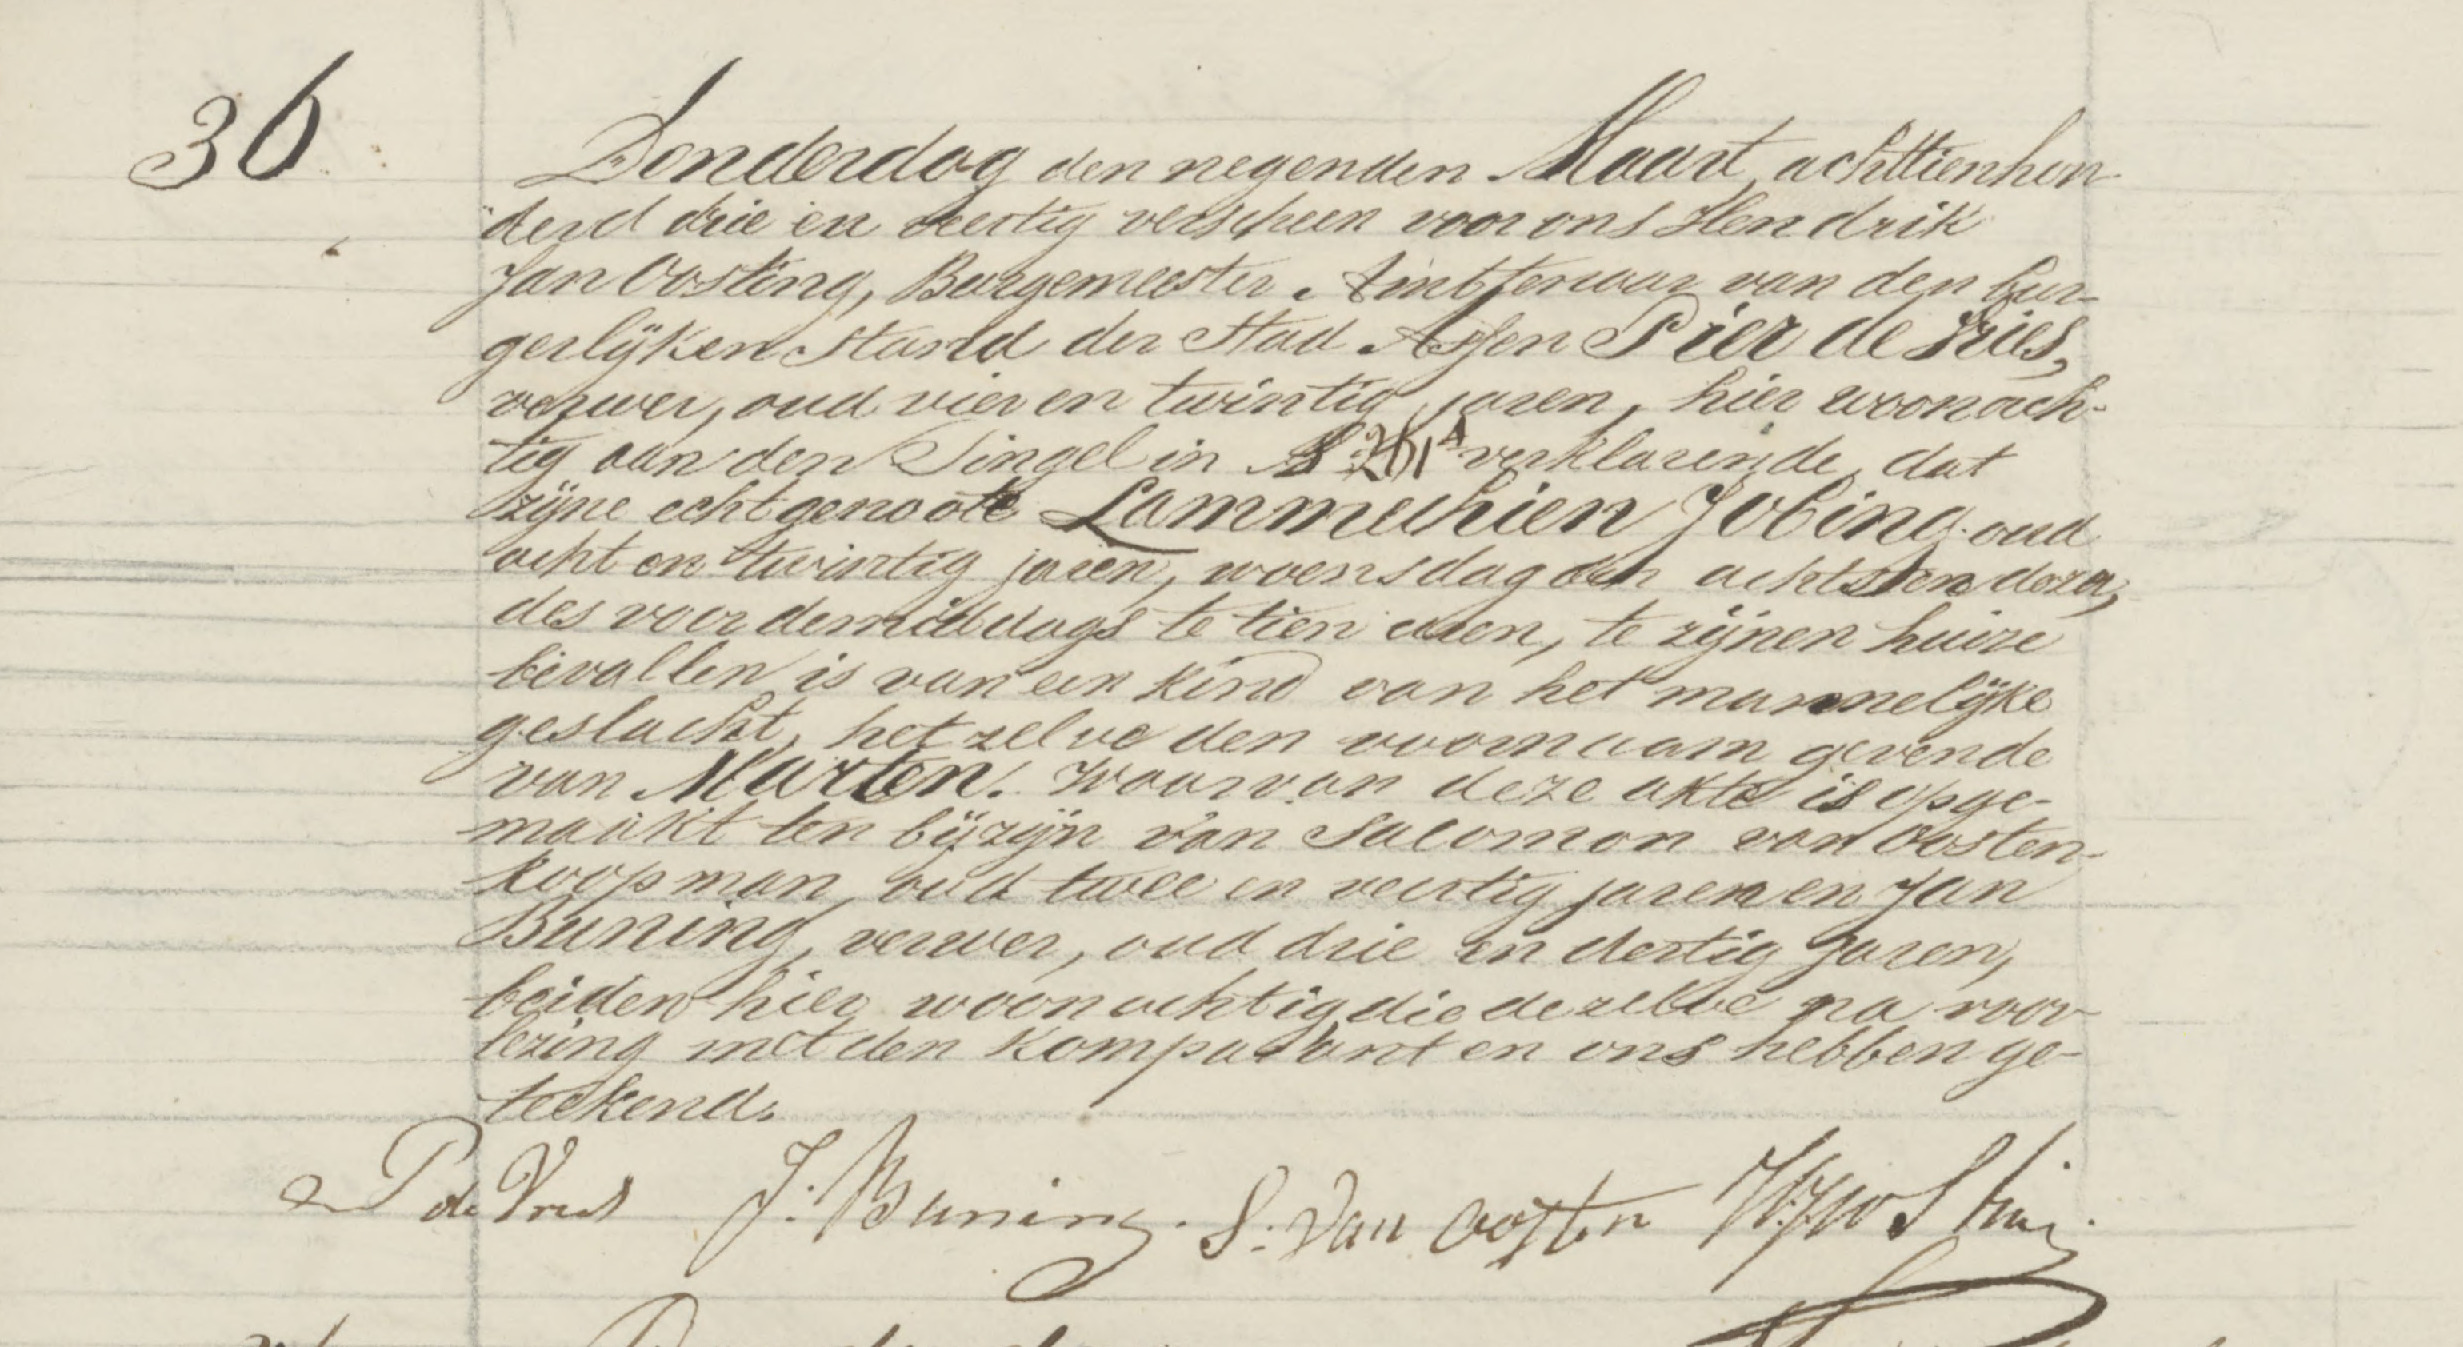 36
Donderdag den negenden Maart, achttienhon-
derd drie en veertig verscheen voor ons Hendrik
Jan Oosting, Burgemeester Ambtenaar van den bur-
gerlijken Stand der Stad Assen Pier de Vries,
verwer, oud vier en twintig jaren, hier woonach-
tig aan den Singel in verklarende, dat
zijne echtgenoote Lammechien Jobing oud
acht en twintig jaren, woensdag den achtsten dezer,
des voordemiddags te tien uren, te zijnen huize
bevallen is van een kind van het mannelijke
geslacht, hetzelve den voornaam gevende
van Marten. Waarvan deze akte is opge-
maakt ten bijzijn van Salomon van Oosten
koopman, oud twee en veertig jaren en Jan
Buning, verwer, oud drie en dertig jaren,
beiden hier woonachtig die dezelve na voor-
lezing met den komparant en ons hebben ge-
teekend.
P de Vries J. Buning. S. van Oosten